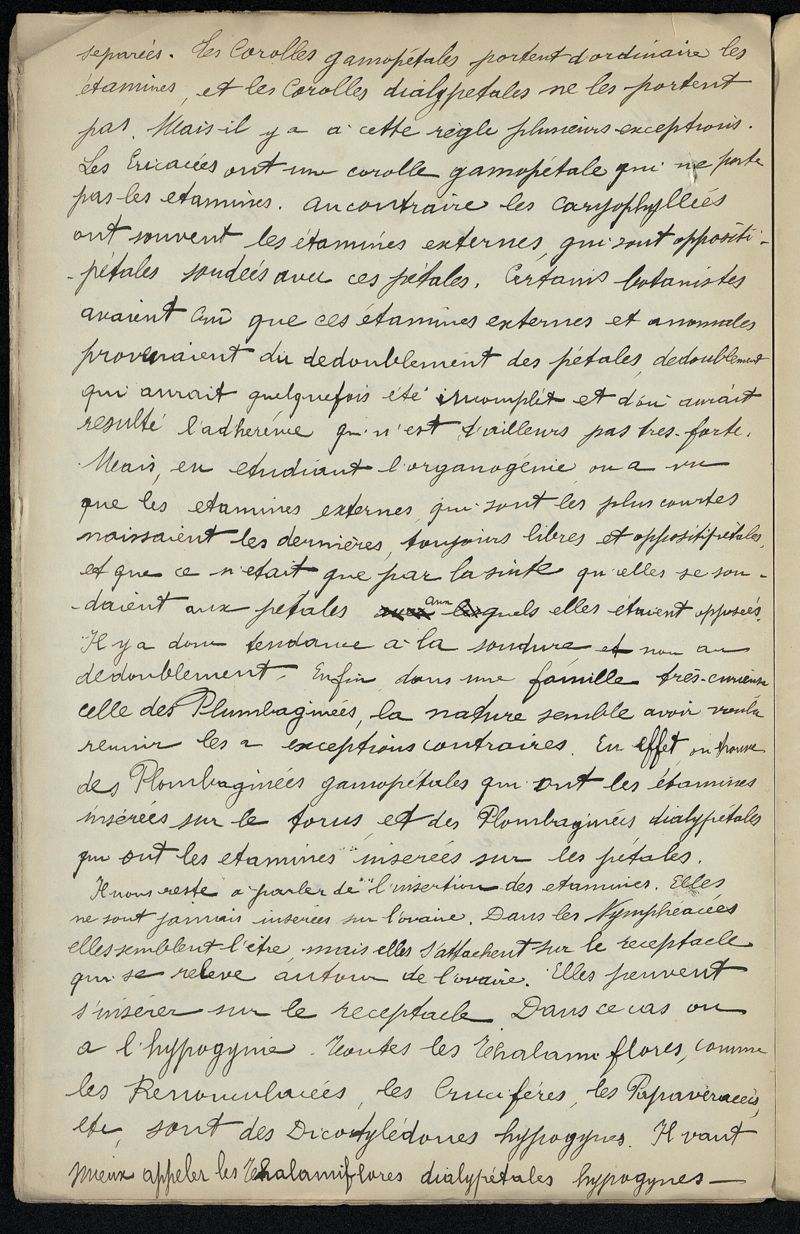 separées. Les Corolles gamopétales portent d'ordinaire les
étamines, et les Corolles dialypetales ne les portent
pas. Mais il y a à cette règle plusieurs exceptions.
Les Ericacées ont une corolle gamopétale qui ne porte
pas les etamines. au contraire les Caryophyllées
ont souvent les étamines externes, qui sont oppositi-
-pétales soudées avec ces pétales. Certains botanistes
avaient cru que ces étamines externes et anomales
provenaient du dedoublement des pétales, dedoublement
qui aurait quelquefois été incomplèt et d'où aurait
resulté l'adhérence qui n'est d'ailleurs pas tres-forte.
Mais, en etudiant l'organogénie on a vu
que les etamines externes qui sont les plus courtes
naissaient les dernières, toujours libres et oppositipétales,
et que ce n'était que par la suite qu'elles se sou-
-daient aux petales auxquels elles étaient opposées.
Il y a donc tendance à la soudure et non au
dedoublement. Enfin, dans une famille très-curieuse
celle des Plumbaginées, la nature semble avoir voulu
reunir les 2 exceptions contraires. En effet on trouve
des Plombaginées gamopétales qui ont les étamines
insérées sur le torus et des Plombaginées dialypétales
qui ont les etamines inserées sur les pétales.
Il nous reste à parler de l'insertion des etamines. Elles
ne sont jamais inserées sur l'ovaire. Dans les Nymphéacées
elles semblent l'être, mais elles s'attachent sur le receptacle
qui se releve autour de l'ovaire. Elles peuvent
s'insérer sur le receptacle. Dans ce cas on
a l'hypogynie. Toutes les Thalamiflores, comme
les Renonculacées, les Crucifères, les Papaveracées,
etc, sont des Dicotylédones hypogynes. Il vaut
mieux appeler les Thalamiflores dialypétales hypogynes—